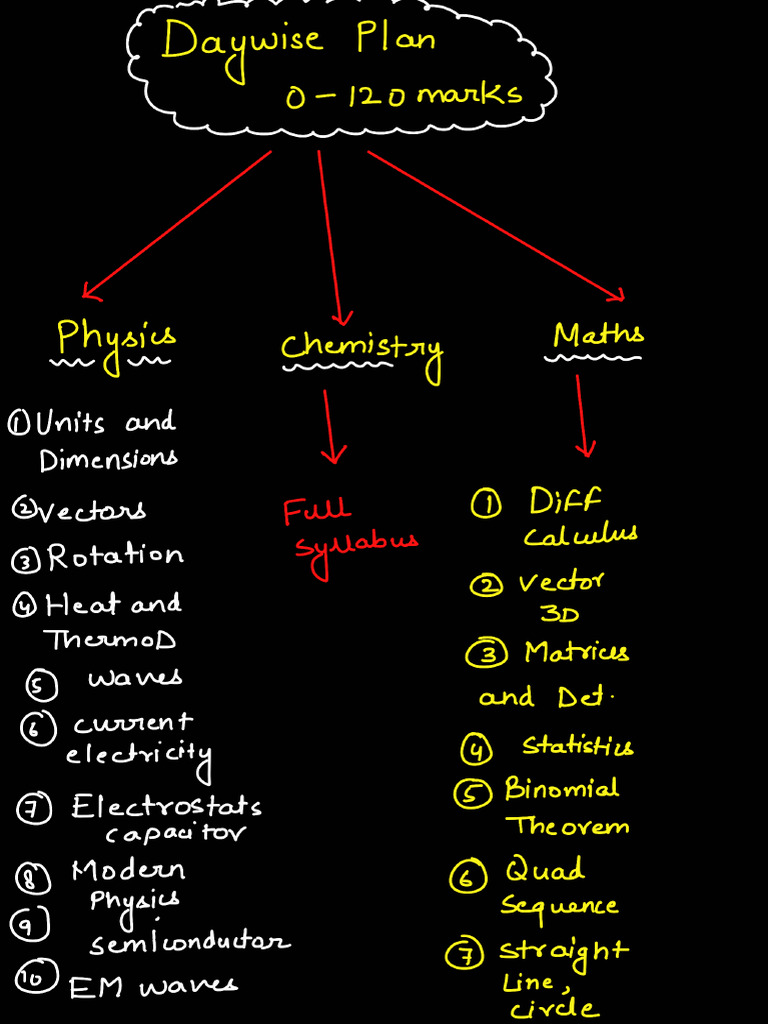 Daywise Plan
0 - 120 marks
Physics
① Units and
Dimensions
② Vectors
③ Rotation
④ Heat and
ThermoD
⑤ waves
⑥ current
electricity
⑦ Electrostats
capacitor
⑧ Modern
Physics
⑨ semiconductor
⑩ EM waves
Chemistry
Full
Syllabus
Maths
① Diff
Calculus
② Vector
3D
③ Matrices
and Det.
④ Statistics
⑤ Binomial
Theorem
⑥ Quad
Sequence
⑦ Straight
Line,
circle